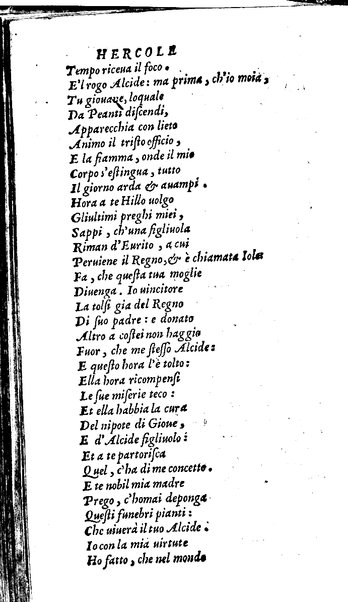 HERCOLE
Tempo riceua il foco.
E'l rogo Alcide: ma prima, ch'io moia,
Tu giouane, loquale
Da Peanti discendi,
Apparecchia con lieto
Animo il tristo officio,
E la fiamma, onde il mio
Corpo s'estingua, tutto
Il giorno arda & auampi.
Hora a te Hillo uolgo
Gliultimi preghi miei,
Sappi, ch'una figliuola
Riman d'Eurito, a cui
Peruiene il Regno, & è chiamata Iole
Fa, che questa tua moglie
Diuenga. Io uincitore
La tolsi gia del Regno
Di suo padre: e donato
Altro a costei non haggio
Fuor, che me stesso Alcide:
E questo hora l'è tolto:
Ella hora ricompensi
Le sue miserie teco:
Et ella habbia la cura
Del nipote di Gioue,
E d'Alcide figliuolo:
Et a te partorisca
Quel, c'ha di me concetto.
E te nobil mia madre
Prego, c'homai deponga
Questi funebri pianti:
Che uiuerà il tuo Alcide.
Io con la mia uirtute
Ho fatto, che nel mondo